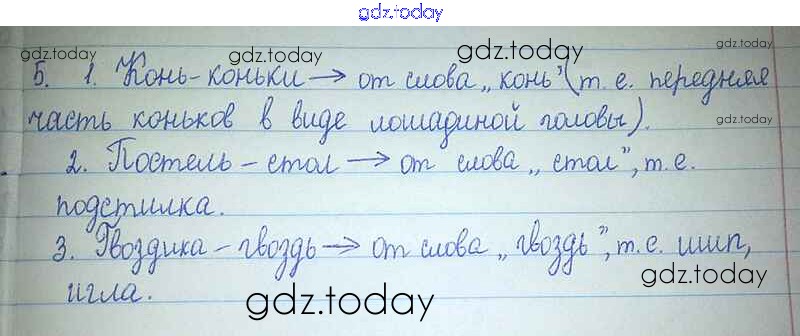 gdz.today
gdz.today gdz.today gdz.today gdz.today
Б. 1. Конь-коньки → от слова „конь" (т. е. передняя
часть коньков в виде лошадиной головы).
gdz.today
2. Постель - стол → от слова „стол", т. е.
подстилка.
3. Гвоздика - гвоздь → от слова „гвоздь", т. е. шип,
игла.
gdz.today gdz.today